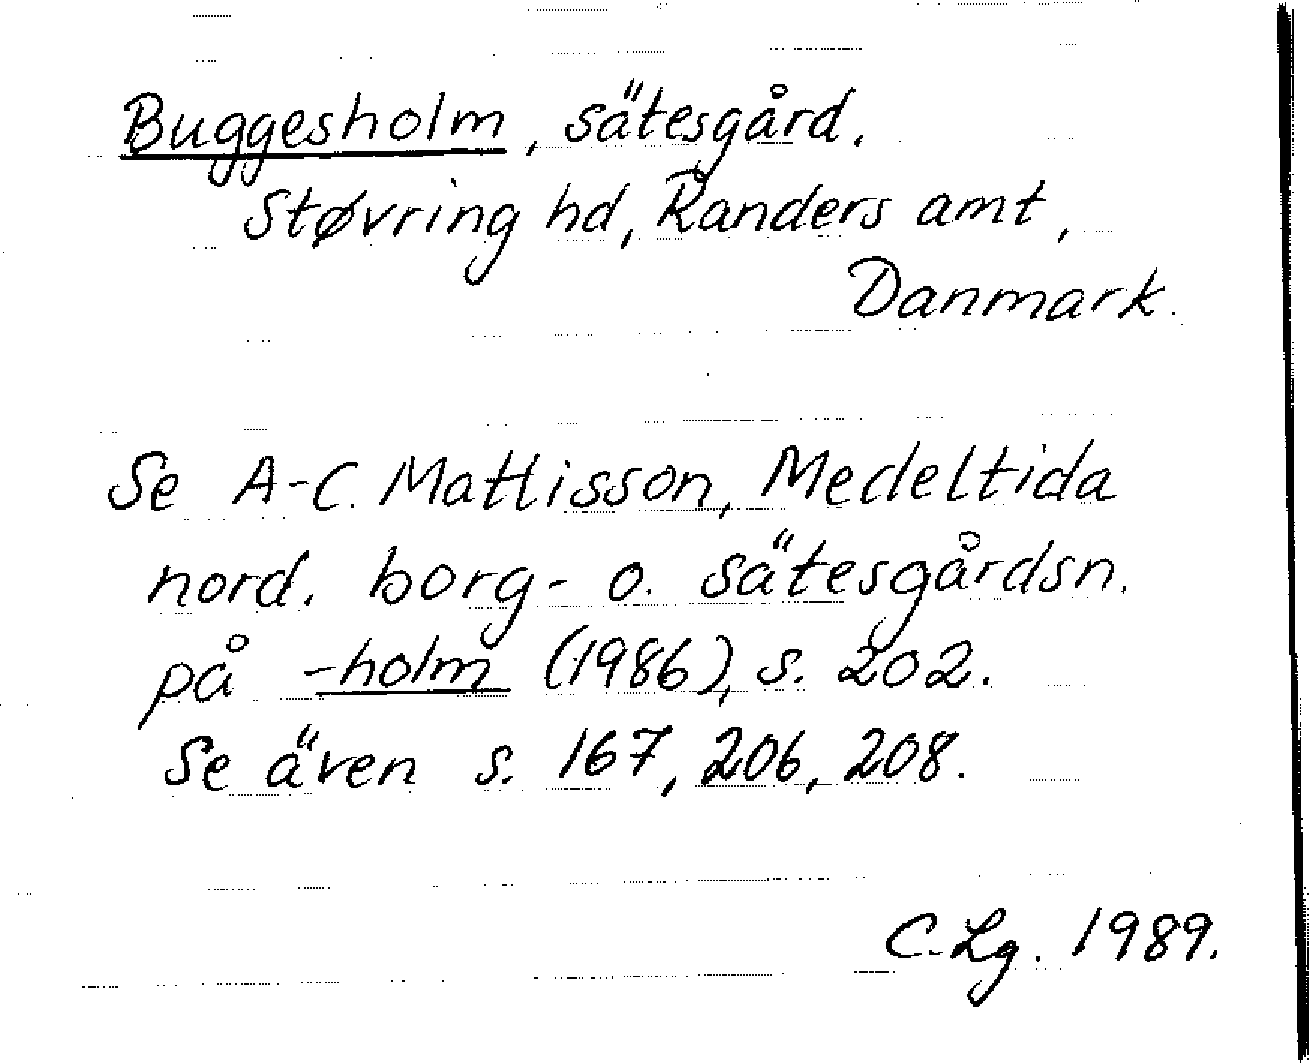 Buggesholm, sätesgård.
Støvring hd, Randers amt,
Danmark.
Se A-C. Mattisson, Medeltida
nord. borg- o. sätesgårdsn.
på -holm (1986), s. 202.
Se även s. 167, 206, 208.
C. Lg. 1989.